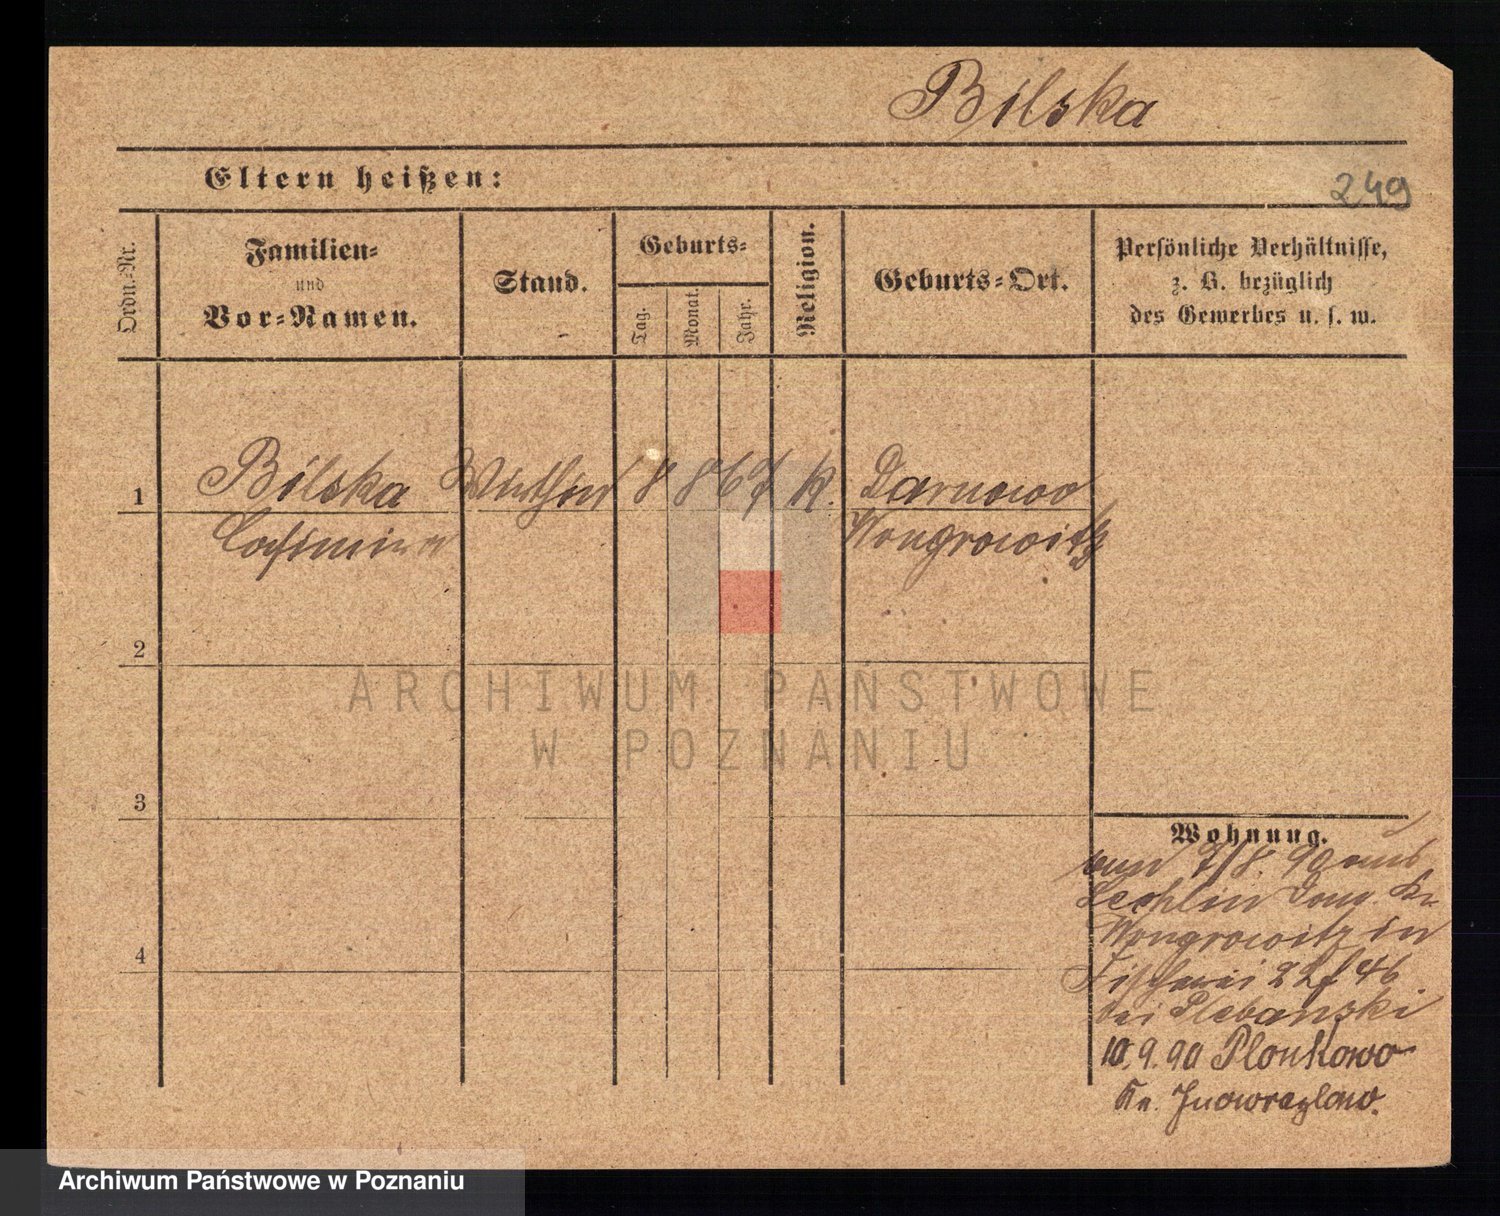 Bilska
Eltern heißen:
249
Ordn.-Nr.
Familien-
und
Vor-Namen.
Stand.
Geburts-
Tag.
Monat.
Jahr.
Religion.
Geburts-Ort.
Persönliche Verhältnisse,
z. B. bezüglich
des Gewerbes u. s. w.
1 Bilska Wirthin 8 8 67 k. Darnowo
Casimira Wongrowitz
2
ARCHIWUM PAŃSTWOWE
W POZNANIU
3
Wohnung.
7/8. 90 aus
Lechlin Dom. Kr.
Wongrowitz in
Fischerei 22 f 46
bei Plebanski
10.9.90 Plonkowo
Kr. Inowrazlaw.
4
Archiwum Państwowe w Poznaniu